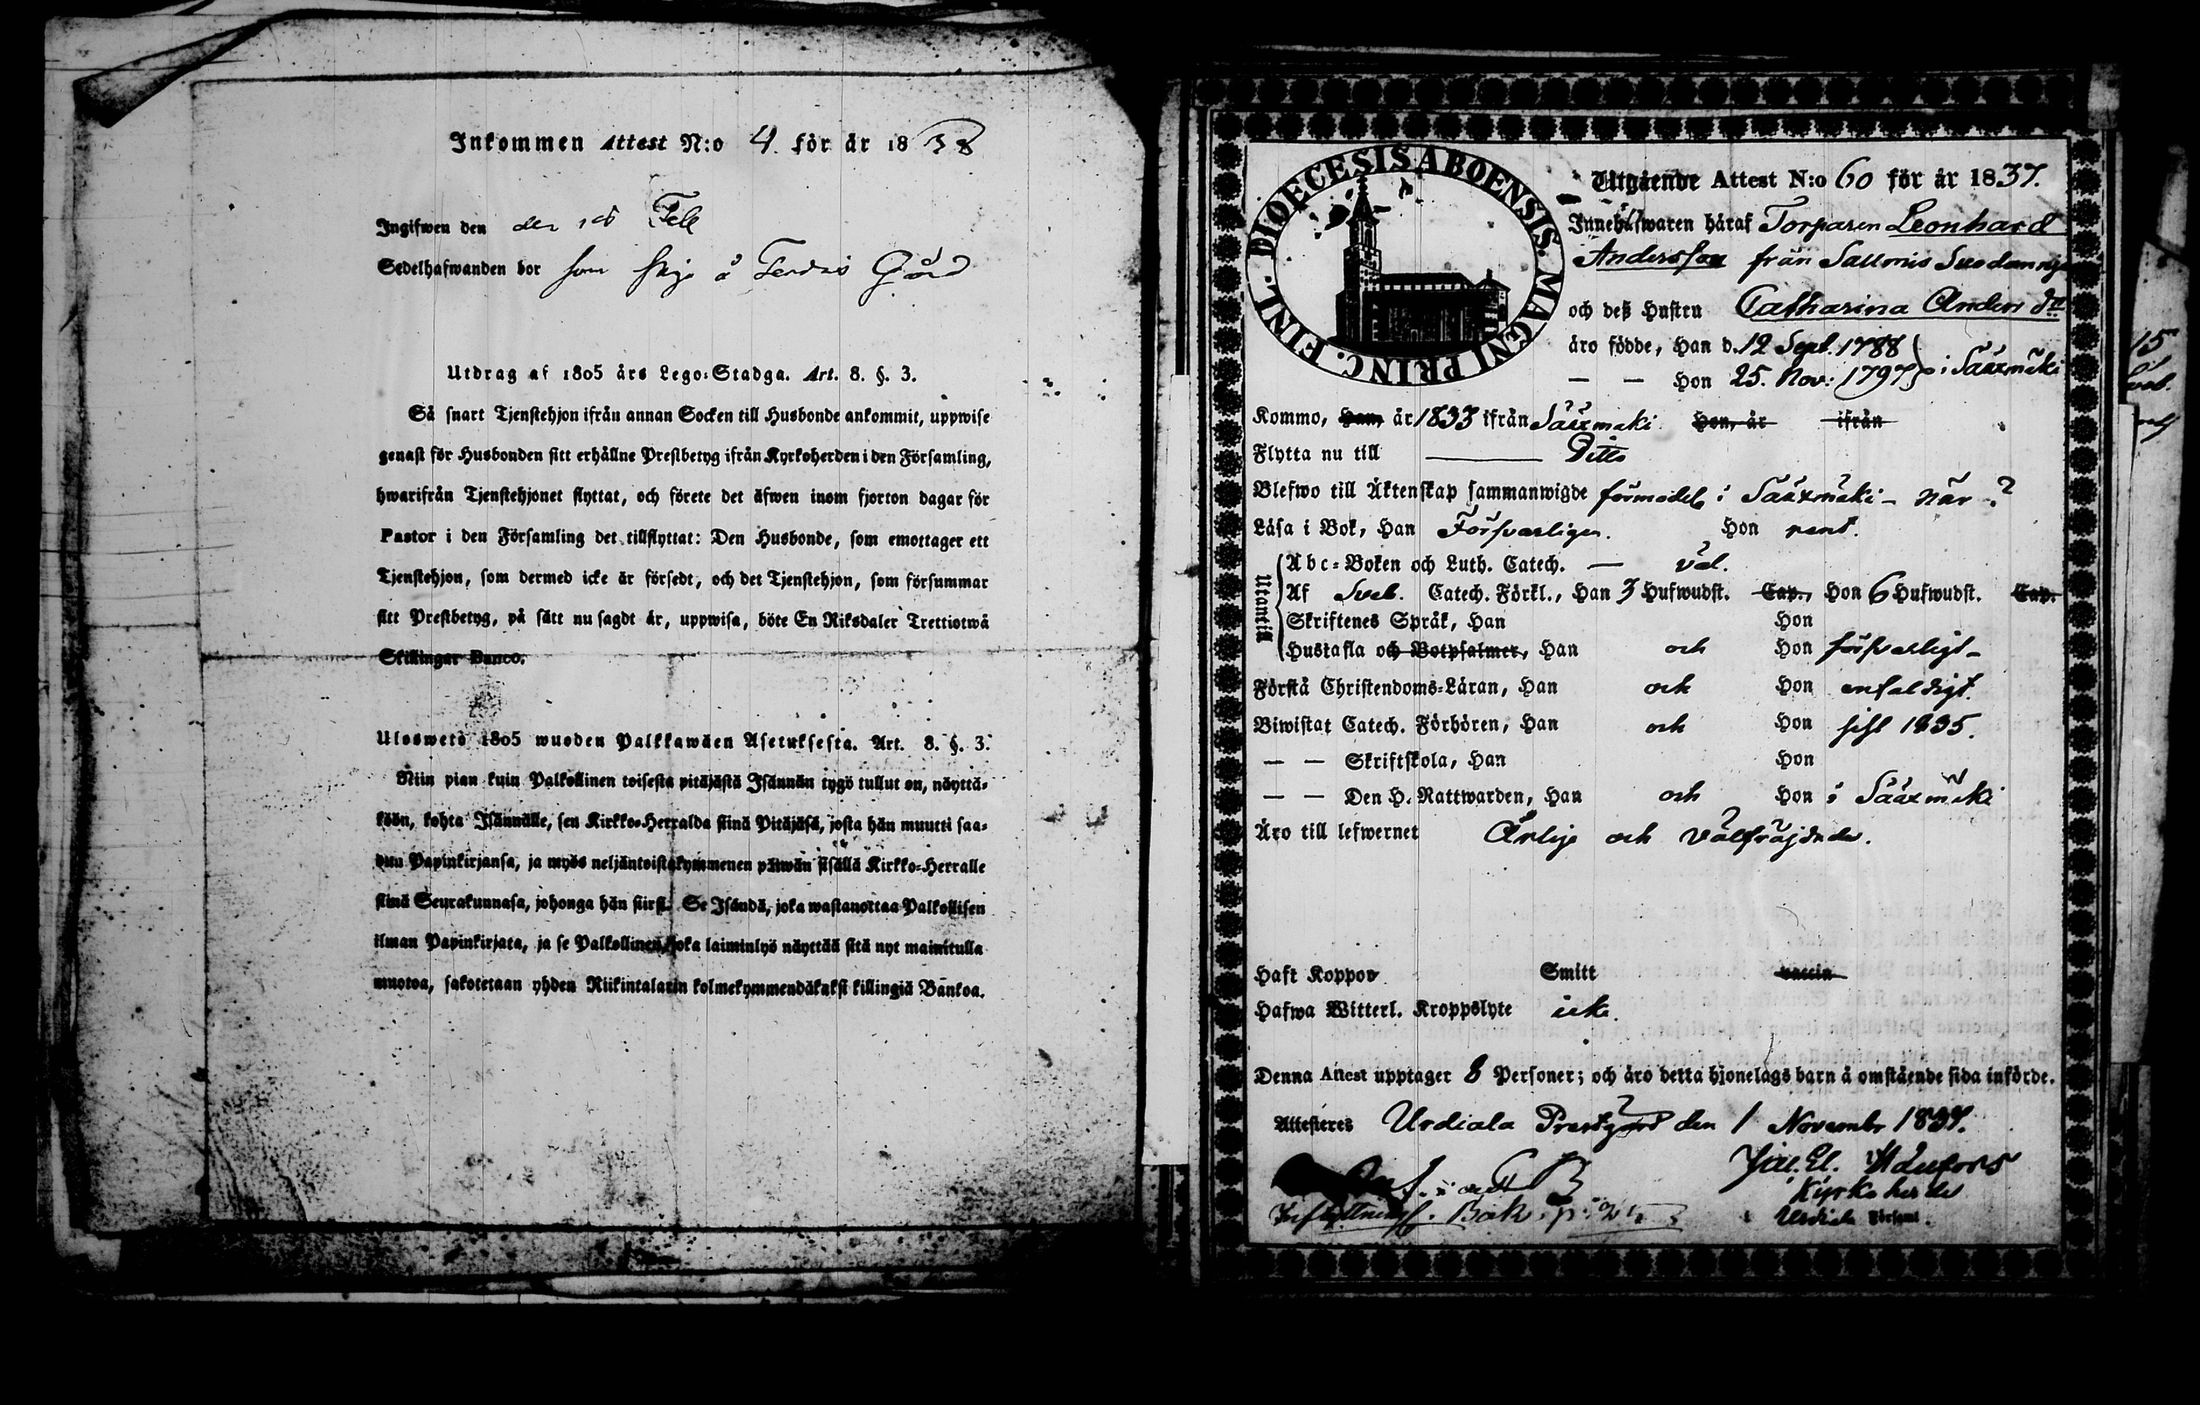 Inkommen Attest N:o 4. för år 1838
Ingifwen den den 18 Feb
Sedelhafwanden bor som å Gård
Utdrag af 1805 års Lego-Stadga. Art. 8. §. 3.
Så snart Tjenstehjon ifrån annan Socken till Husbonde ankommit, uppwise
genast för Husbonden sitt erhållne Prestbetyg ifrån Kyrkoherden i den Församling,
hwarifrån Tjenstehjonet flyttat, och förete det äfwen inom fjorton dagar för
Pastor i den Församling det tillflyttat: Den Husbonde, som emottager ett
Tjenstehjon, som dermed icke är försedt, och det Tjenstehjon, som försummar
sitt Prestbetyg, på sätt nu sagdt är, uppwisa, böte En Riksdaler Trettiotwå
Skillingar Banco.
Uloswetö 1805 wuoden Palkkawäen Asetuksesta. Art. 8. §. 3.
Niin pian kuin Palkollinen toisesta pitäjästä Isännän tygö tullut on, näyttä-
köön, kohta Isännälle, sen Kirkko-Herralda siinä Pitäjäsä, josta hän muutti saa-
dun Papinkirjansa, ja myös neljäntoistakymmenen päiwän sisällä Kirkko-Herralle
siinä Seurakunnasa, johonga hän siirsi. Se Isändä, joka wastanottaa Palkollisen
ilman Papinkirjata, ja se Palkollinen, joka laiminlyö näyttää sitä nyt mainitulla
muotoa, sakotetaan yhden Riikintalarin kolmekymmendäkaksi killingiä Bankoa.
DIOECESIS ABOENSIS. MAGNI PRINC. FINL.
Utgående Attest N:o 60 för år 1837.
Innehafwaren häraf Torparen Leonhard
Andersson från
och deß Hustru Catharina Anders dr
äro födde, Han d. 12 Sept. 1788
— — Hon 25. Nov: 1797 i Sääxmäki
Kommo, Han, år 1833 ifrån Sääxmäki Hon, år ifrån
Flytta nu till Ditto
Blefwo till Äktenskap sammanwigde förmodel. i Sääxmäki - när?
Läsa i Bok, Han Försvarligen. Hon rent.
Utantill
Abc-Boken och Luth. Catech. — väl.
Af Sveb. Catech. Förkl., Han 3 Hufwudst. Cap., Hon 6 Hufwudst. Cap.
Skriftenes Språk, Han Hon
Hustafla och Botpsalmer, Han och Hon försvarligt -
Förstå Christendoms-Läran, Han och Hon enfaldigt.
Biwistat Catech. Förhören, Han och Hon sist 1835.
— — Skriftskola, Han Hon
— — Den H. Nattwarden, Han och Hon i Sääxmäki
Äro till lefwernet Ärlige och välfräjdade.
Haft Koppor Smitt vaccin
Hafwa Witterl. Kroppslyte icke.
Denna Attest upptager 8 Personer; och äro detta hjonelags barn å omstående sida införde.
Attesteres Urdiala Prestgård den 1 November 1837.
Kyrkoherde
Inflyttnings. Bok. p: Urdiala Församl.